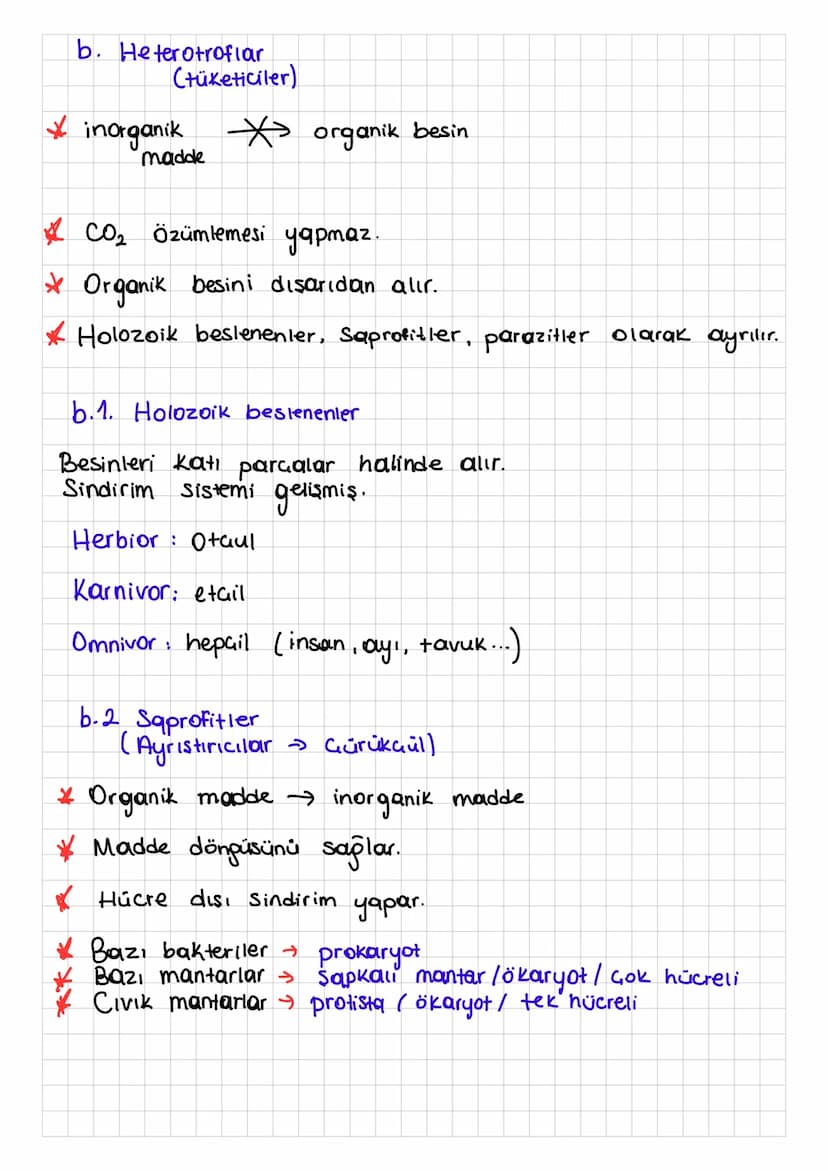 b. Heterotroflar
(tüketiciler)
* inorganik madde -X-> organik besin
* CO₂ özümlemesi yapmaz.
* Organik besini dışarıdan alır.
* Holozoik beslenenler, Saprofitler, parazitler olarak ayrılır.
b.1. Holozoik beslenenler
Besinleri katı parçalar halinde alır.
Sindirim sistemi gelişmiş.
Herbior : Otçul
Karnivor: etçil
Omnivor : hepçil (insan, ayı, tavuk...)
b.2 Saprofitler
(Ayrıştırıcılar → Çürükçül)
* Organik madde → inorganik madde
* Madde döngüsünü sağlar.
* Hücre dışı sindirim yapar.
* Bazı bakteriler → prokaryot
* Bazı mantarlar → Şapkalı mantar / ökaryot / Çok hücreli
* Cıvık mantarlar → protista / ökaryot / tek hücreli